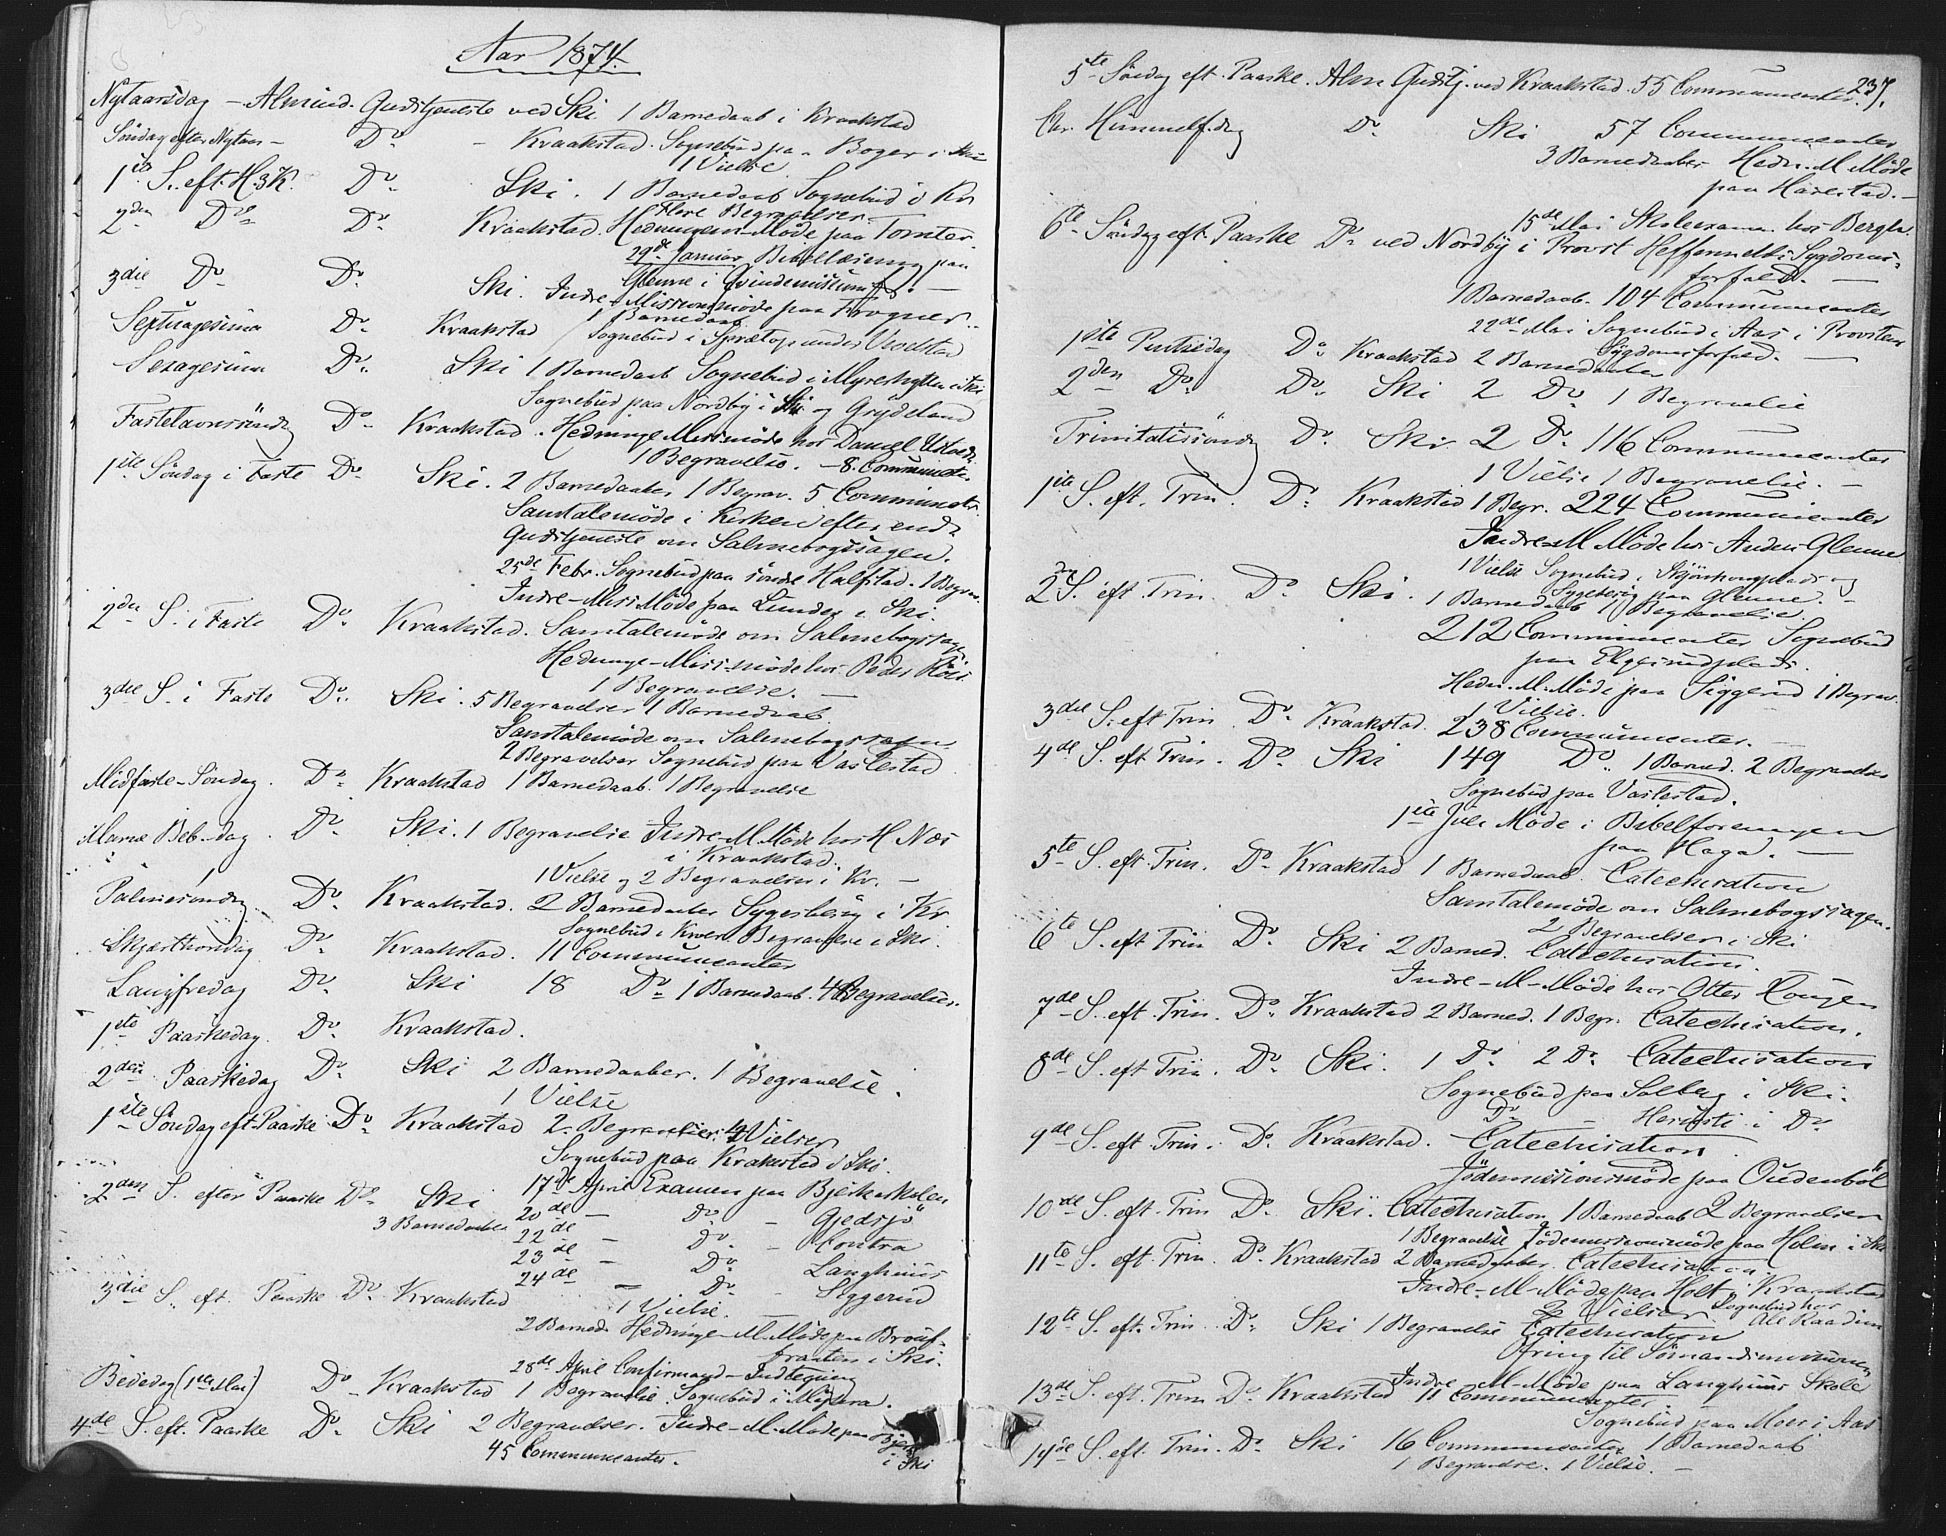 Aar 1874.
Nytaarsdag – Almind. Gudstjeneste ved Ski 1 Barnedaab i Kraakstad
Söndag efter Nytaar – Do – Kraakstad. Sognebud paa Boger i Ski
1 Vielse
1ste S. eft. H.3K. Do Ski. 1 Barnedaab Sognebud i Kr
Flere Begravelser.
2den Do Do Kraakstad. Hedningem-Möde paa Tomter.
29de Januar Bibellæsning paa
Glenne i Qvindemuseum
3die Do Do Ski. Indre-Missionsmöde paa Frogner.
1 Barnedaab
Septuagesima Do Kraakstad Sognebud i Sprætop under Vevelstad
Sexagesima Do Ski 1 Barnedaab Sognebud i Myrehytten i Ski
Sognebud paa Nordby i Ski og Grydeland
Fastelavnssöndag Do Kraakstad. Hedninge Missmöde hos Daniel
1 Begravelse. – 8. Communicanter
1ste Söndag i Faste Do Ski. 2 Barnedaaber 1 Begrav. 5 Communictr.
Samtalemöde i Kirken efter endt
Gudstjeneste om Salmebogssagen.
25de Febr. Sognebud paa söndre Halfstad. 1 Begrav.
Indre-Miss Möde paa Lunder i Ski.
2den S. i Faste Do Kraakstad. Samtalemöde om Salmebogssagen
Hedninge-Miss-möde hos Peder
1 Begravelse. –
3die S. i Faste Do Ski. 5 Begravelser 1 Barnedaab.
Samtalemöde om Salmebogssagen
2 Begravelser Sognebud paa Vastestad
Midfaste-Söndag. Do Kraakstad 1 Barnedaab. 1 Begravelse
Mariæ Beb-dag. Do Ski. 1 Begravelse Indre-M Möde hos H Næs
i Kraakstad.
1 Vielse og 2 Begravelser i Kr. –
Palmesöndag Do Kraakstad. 2 Barnedaaber Sygesbesög i Kr
Sognebud i Kroer. Begravelse i Ski.
Skjærthorsdag Do Kraakstad. 11 Communicanter
Langfredag Do Ski 18 Do 1 Barnedaab. 4 Begravelser.
1ste Paaskedag. Do Kraakstad.
2den Paaskedag Do Ski 2 Barnedaaber. 1 Begravelse.
1 Vielse
1ste Söndag eft. Paaske Do Kraakstad 2. Begravelser. 4 Vielser
Sognebud paa Kraakstad i Ski.
2den S. efter Paaske Do Ski 17de April Examen paa Bjerkeskolen
3 Barnedaaber 20de – Do – Gjedsjö
22de – Do – Contra
23de – Do Langhuus
24de – Do Siggerud
3die S. eft. Paaske Do Kraakstad 1 Vielse.
2 Barned. Hedninge-M-Möde paa
i Ski.
28de April Confirmand-Indtegning
Bededag (1ste Mai) Do Kraakstad 1 Begravelse. Sognebud i
4de S. eft. Paaske Do Ski 2 Begravelser. Indre-M-Möde paa
i Ski
45 Communicanter.
237.
5te Söndag eft. Paaske. Alm Gudstj. ved Kraakstad. 55 Communicanter.
Chr. Himmelf.dag Do Ski 57 Communicanter
3 Barnedaaber Hedn. M Möde
paa Harestad. –
15de Mai Skoleexamen hos Bergler.
6te Söndag eft. Paaske Do ved Nordby i Provst Heffermehls Sygdoms-
forfald. –
1 Barnedaab. 104 Communicanter
22de Mai Sognebud i Aas i Provstens
Sygdomsforfald. –
1ste Pintsedag Do Kraakstad 2 Barnedaaber
2den Do Do Ski 2 Do 1 Begravelse
Trinitatissöndag Do Ski. 2 Do 116 Communicanter
1 Vielse 1 Begravelse. –
1ste S. eft. Trin. Do Kraakstad 1 Begr. 224 Communicanter
Indre-M Möde hos Anders Glenne
1 Vielse Sognebud i og
Sygebesög paa Glenne. –
2den S. eft. Trin. Do Ski. 1 Barnedaab 1 Begravelse.
212 Communicanter Sognebud
paa Elgerudplads.
Hedn. M-Möde paa Siggerud 1 Begrav.
1 Vielse.
3die S. eft Trin Do Kraakstad. 238 Communicanter. –
4de S. eft Trin. Do Ski 149 Do. 1 Barned. 2 Begravelser
Sognebud paa Vastestad.
1ste Juli Möde i Bibelforeningen
paa Haga. –
5te S. eft. Trin. Do Kraakstad 1 Barnedaab. Catechisation
Samtalemöde om Salmebogssagen.
2 Begravelser i Ski
6te S. eft Trin Do Ski 2 Barned. Catechisation.
Indre-M-Möde hos Otter
7de S. eft. Trin. Do Kraakstad 2 Barned. 1 Begr. Catechisation.
8de S. eft Trin. Do Ski. 1 Do 2 Do. Catechisation
Sognebud paa Solberg i Ski.
Do – i Do
9de S. eft. Trin. Do. Kraakstad. Catechisation.
Jödemissionsmöde paa Oudenböl
10de S. eft. Trin Do Ski. Catechisation 1 Barnedaab 2 Begravelser
1 Begravelse Jödemissionsmöde paa Holm i Ski
11te S. eft. Trin. Do Kraakstad 2 Barnedaaber. Catechisation.
Indre-M-Möde paa Holt i Kraakstad
2 Vielser. Sognebud hos
12te S. eft. Trin. Do Ski 1 Begravelse Catechisation
Ofring til Sömandsmissionen
Indre M-Möde paa Langhuus Skole
13de S. eft. Trin Do Kraakstad 11 Communicanter.
Sognebud paa Moer i Aas
14de S. eft. Trin. Do Ski 16 Communicanter 1 Barnedaab
1 Begravelse. 1 Vielse. –